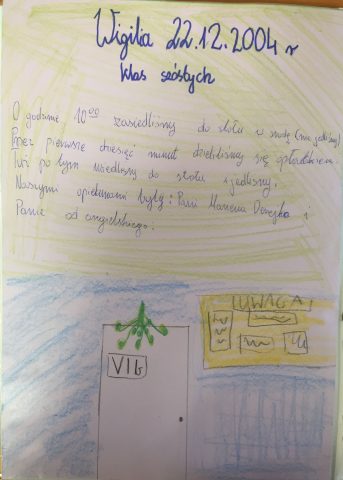 Wigilia 22.12.2004 r
klas szóstych
O godzinie 10⁰⁰ zasiedliśmy do stołu w sali (nie jedliśmy)
Przez pierwsze dziesięć minut dzieliliśmy się opłatkiem.
Tuż po tym usiedliśmy do stołu i jedliśmy.
Naszymi opiekunami były: Pani Marzena i
Panie od angielskiego.
UWAGA!
VIG